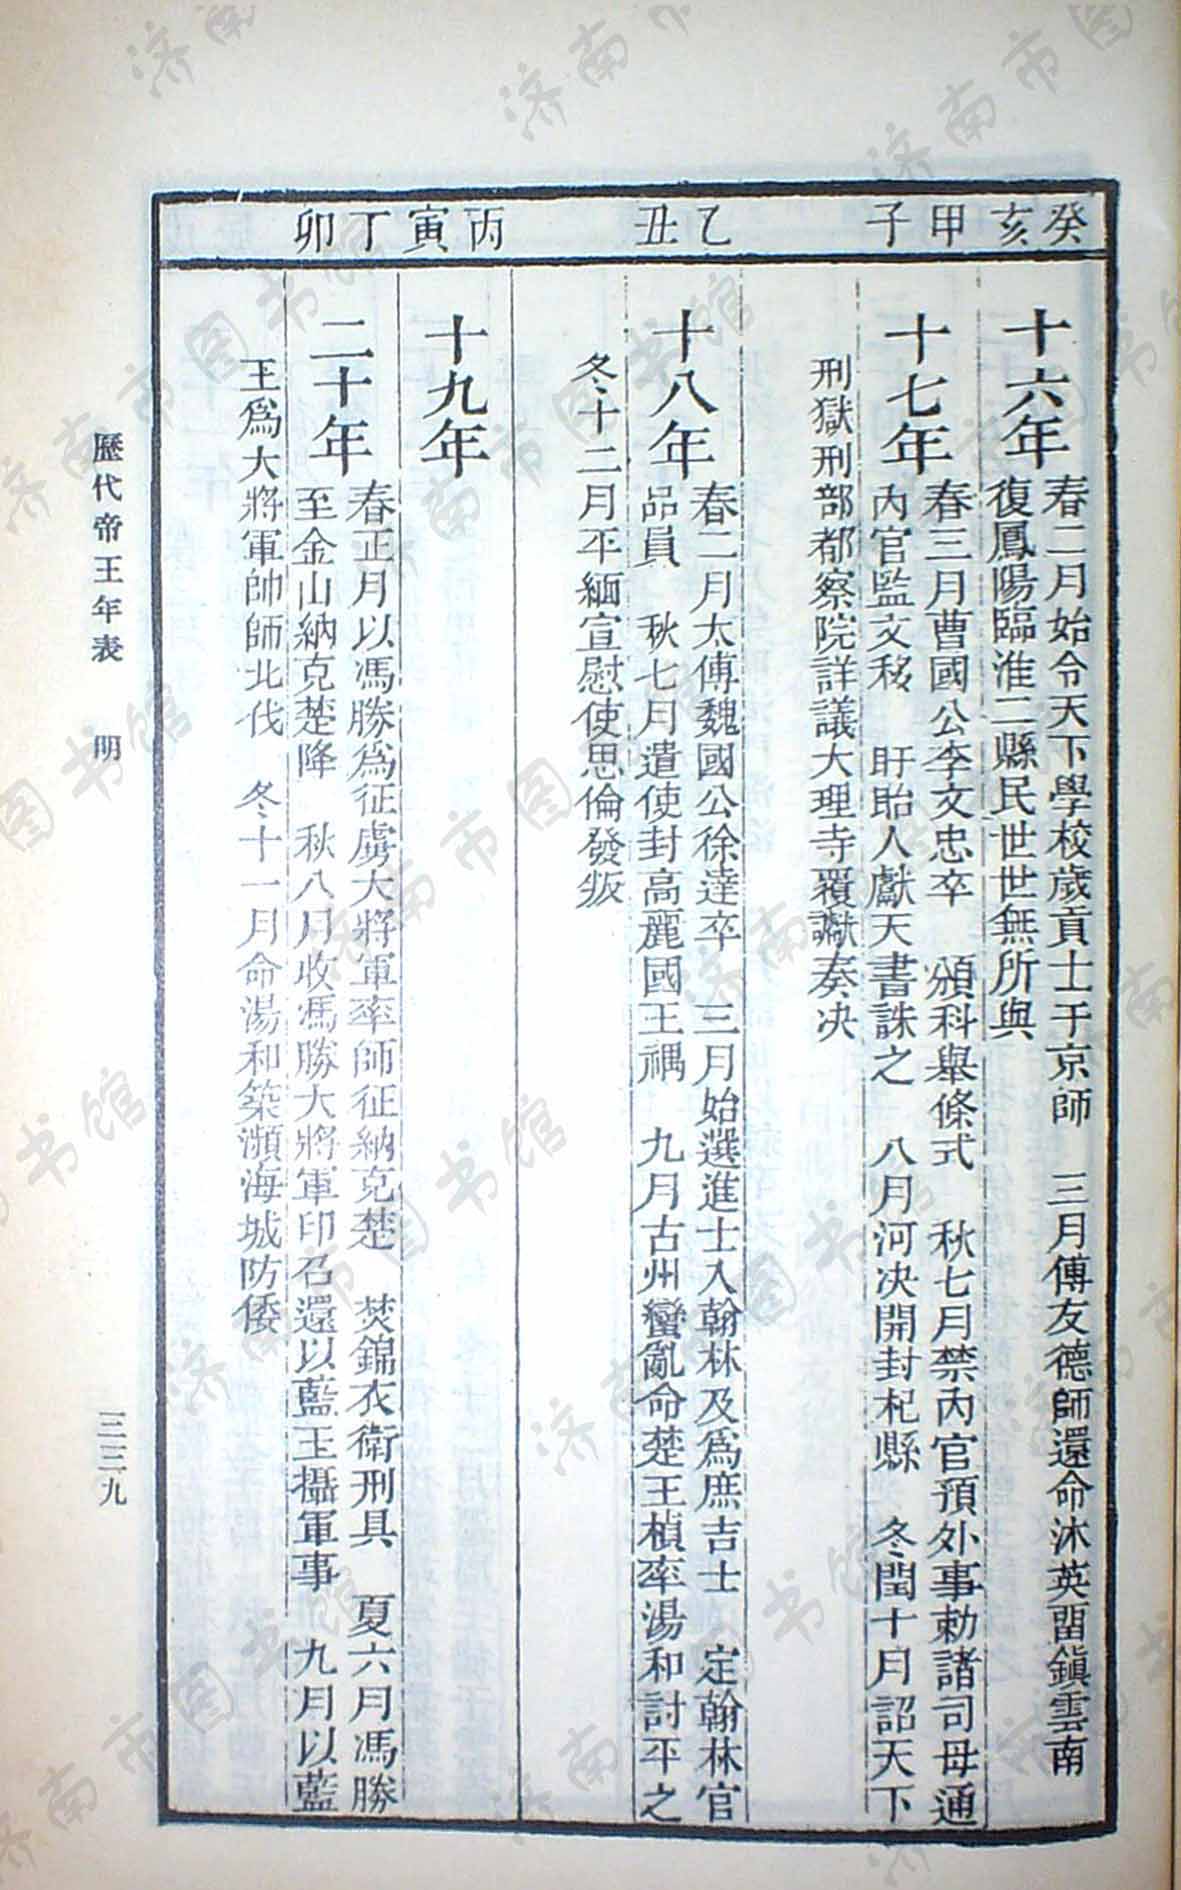 癸亥
甲子
乙丑
丙寅
丁卯
十六年
春二月始令天下學校歲貢士于京師　三月傅友德師還命沐英畱鎭雲南
復鳳陽臨淮二縣民世世無所與
十七年
春三月曹國公李文忠卒　頒科舉條式　秋七月禁內官預外事勅諸司毋通
內官監文移　盱眙人獻天書誅之　八月河決開封杞縣　冬閏十月詔天下
刑獄刑部都察院詳議大理寺覆讞奏決
十八年
春二月太傅魏國公徐達卒　三月始選進士入翰林及爲庶吉士　定翰林官
品員　秋七月遣使封高麗國王禑　九月古州蠻亂命楚王楨率湯和討平之
冬十二月平緬宣慰使思倫發叛
十九年
二十年
春正月以馮勝爲征虜大將軍率師征納克楚　焚錦衣衛刑具　夏六月馮勝
至金山納克楚降　秋八月收馮勝大將軍印召還以藍玉攝軍事　九月以藍
玉爲大將軍帥師北伐　冬十一月命湯和築瀕海城防倭
歷代帝王年表　明
三三九
济南市图书馆